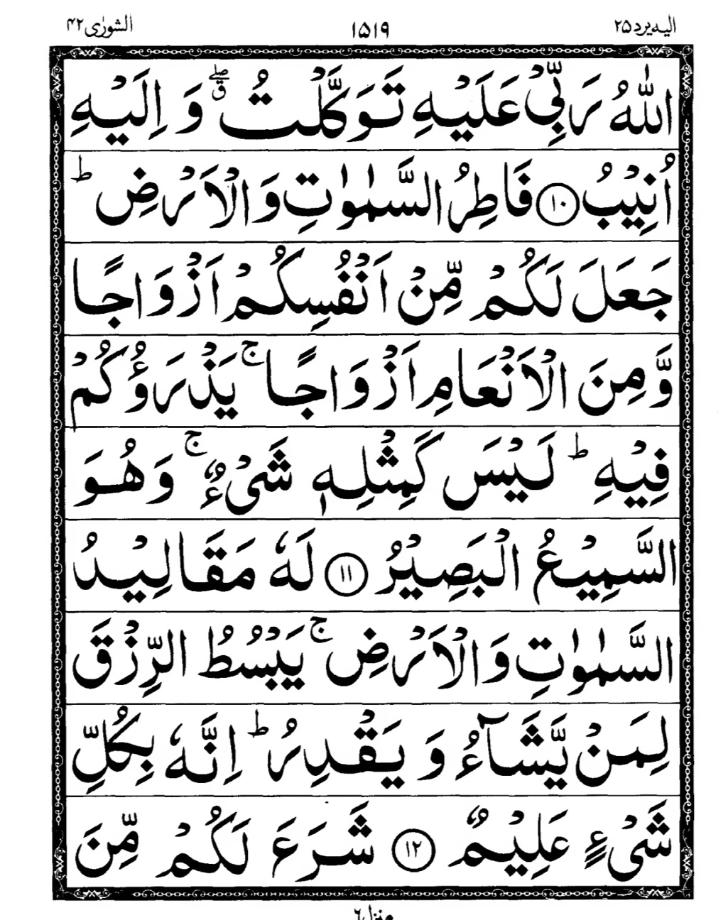 الیه یرد ۲۵ ۱۵۱۹ الشورٰی ۴۲
اللّٰهُ رَبِّیْ عَلَیْهِ تَوَكَّلْتُ ۖۗ وَ اِلَیْهِ
اُنِیْبُ ۱۰ فَاطِرُ السَّمٰوٰتِ وَالْاَرْضِ ؕ
جَعَلَ لَكُمْ مِّنْ اَنْفُسِكُمْ اَزْوَاجًا
وَّ مِنَ الْاَنْعَامِ اَزْوَاجًا ۚ یَذْرَؤُكُمْ
فِیْهِ ؕ لَیْسَ كَمِثْلِهٖ شَیْءٌ ۚ وَهُوَ
السَّمِیْعُ الْبَصِیْرُ ۱۱ لَهٗ مَقَالِیْدُ
السَّمٰوٰتِ وَالْاَرْضِ ۚ یَبْسُطُ الرِّزْقَ
لِمَنْ یَّشَآءُ وَ یَقْدِرُ ؕ اِنَّهٗ بِكُلِّ
شَیْءٍ عَلِیْمٌ ۱۲ شَرَعَ لَكُمْ مِّنَ
منزل ۶